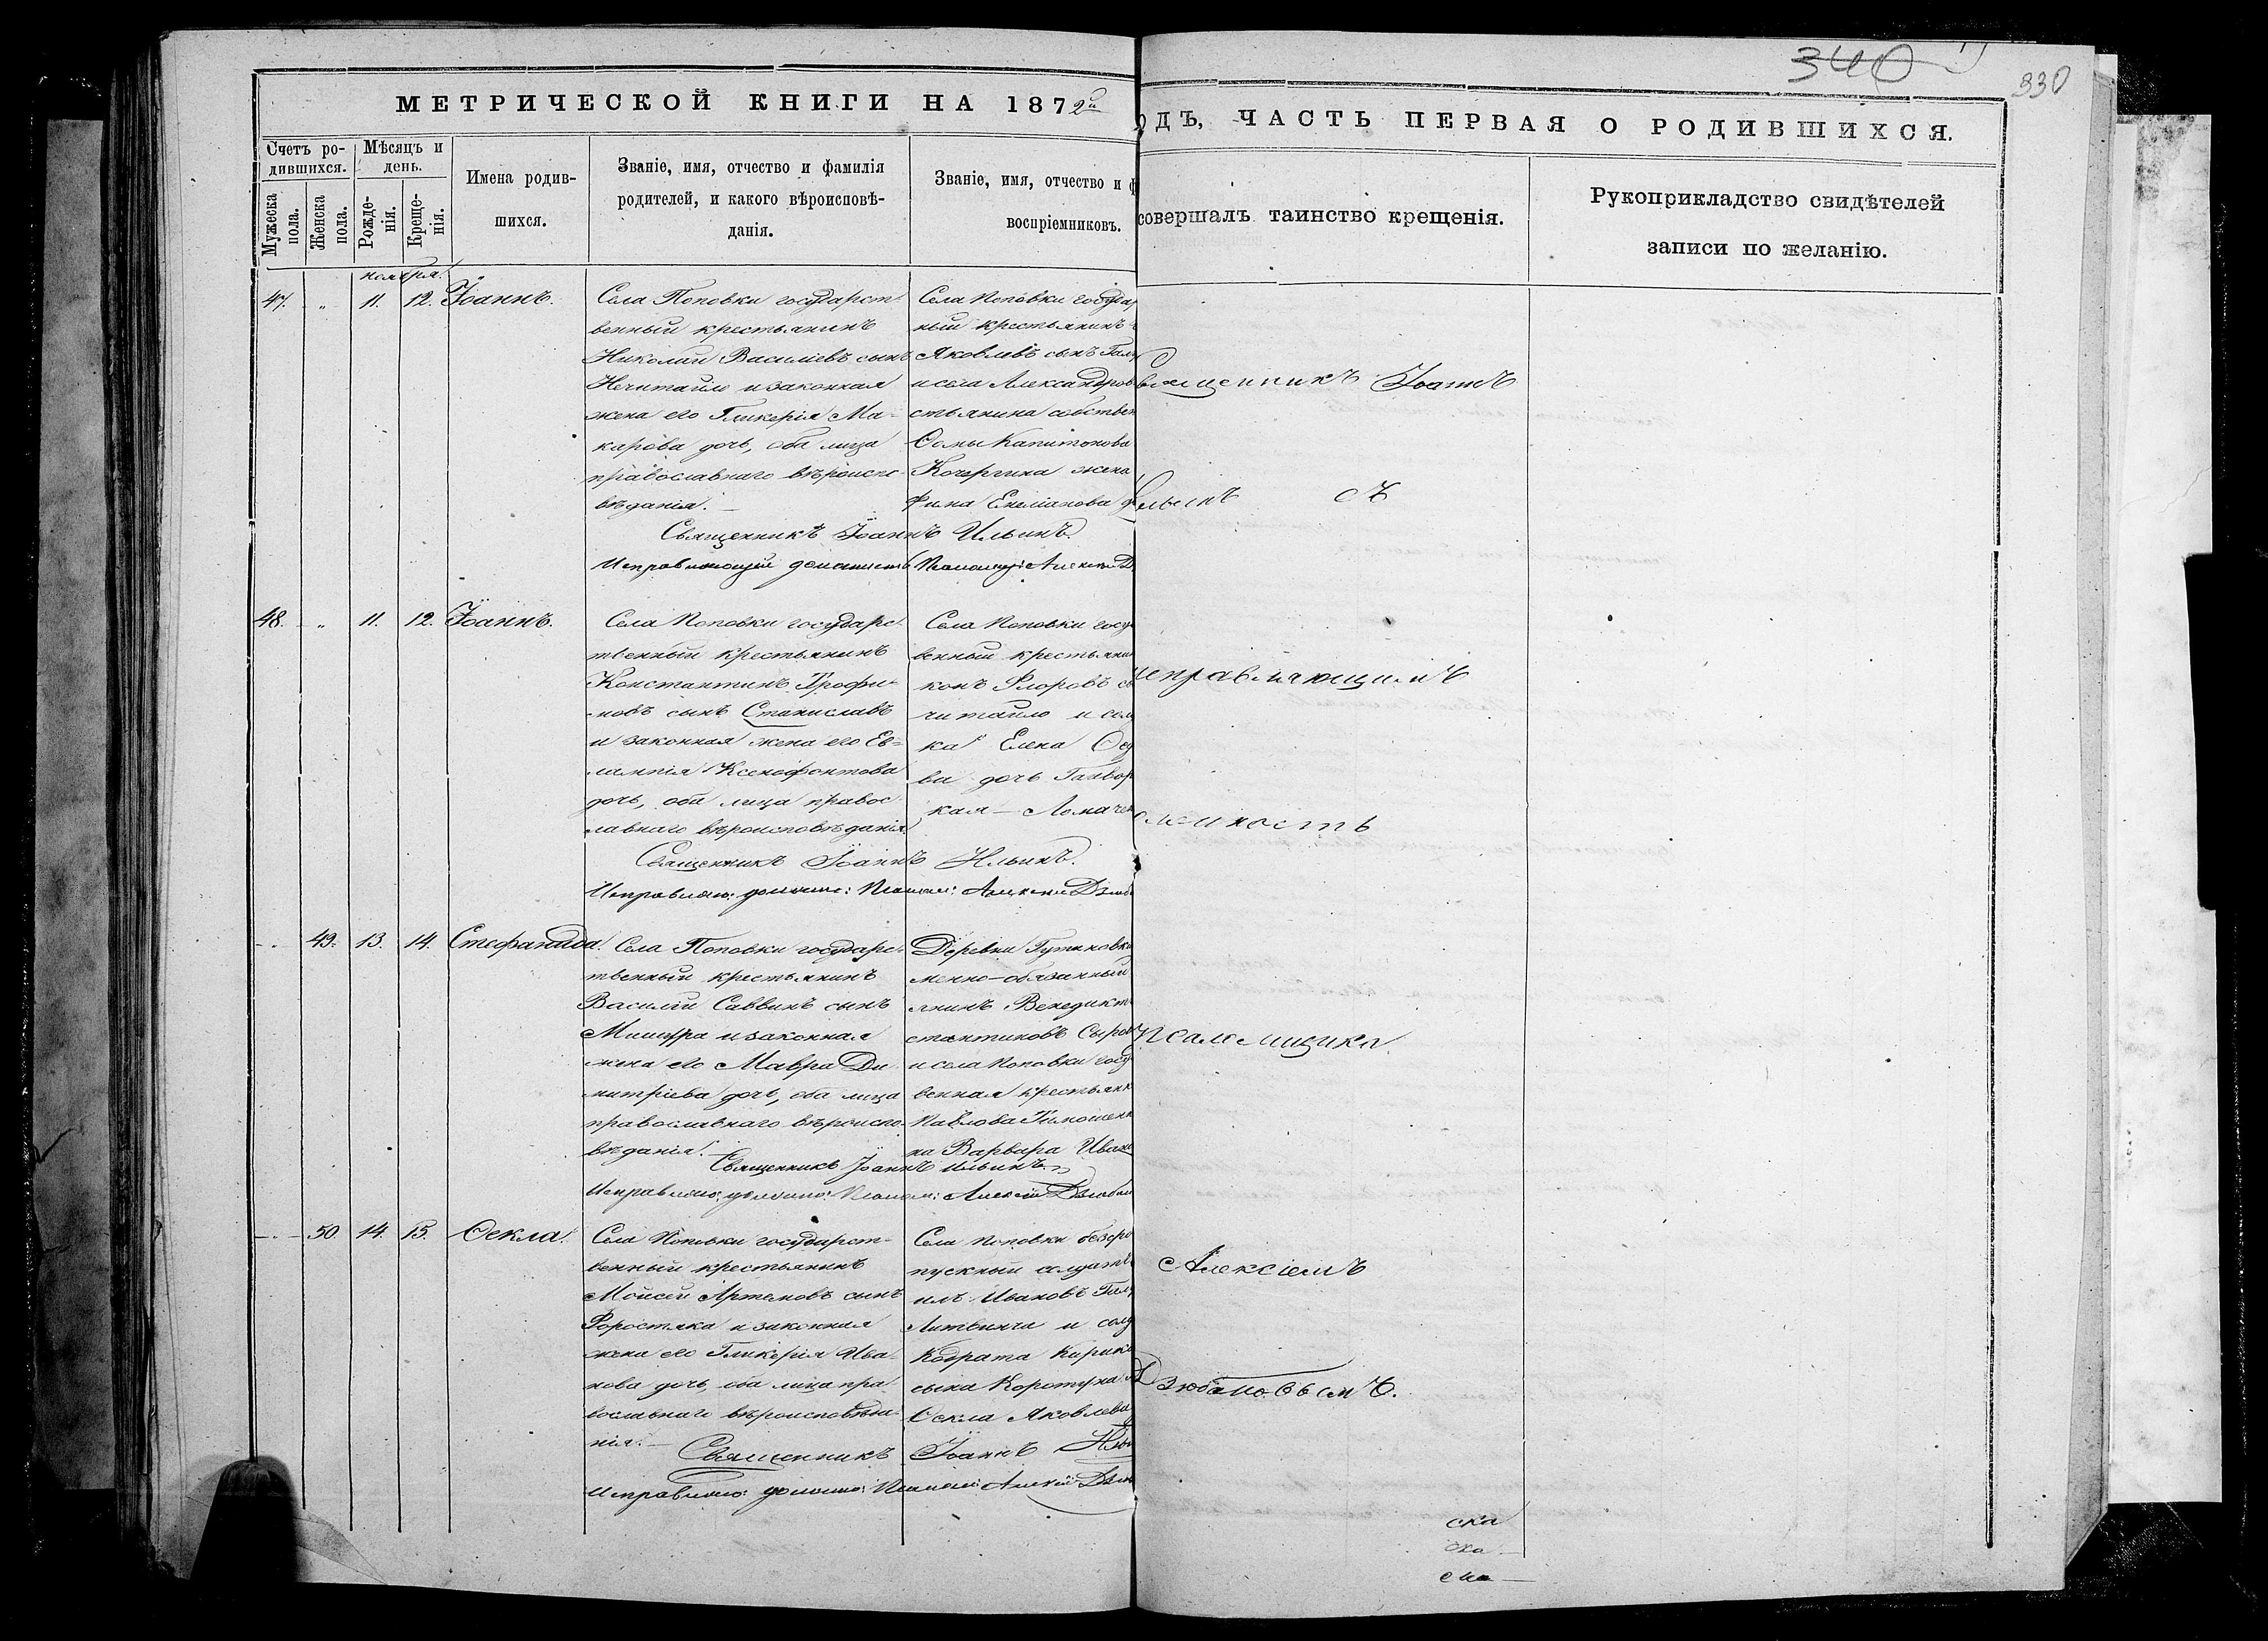 340
330
МЕТРИЧЕСКОЙ КНИГИ НА 1872й
ОДЪ, ЧАСТЬ ПЕРВАЯ О РОДИВШИХСЯ.
Счетъ ро-
дившихся.
Мужеска пола.
Женска пола.
Мѣсяцъ и
день.
Рожде-
нія.
Креще-
нія.
Имена родив-
шихся.
Званіе, имя, отчество и фамилія
родителей, и какого вѣроисповѣ-
данія.
Званіе, имя, отчество и ф
воспріемниковъ.
совершалъ таинство крещенія.
Рукоприкладство свидѣтелей
записи по желанію.
ноября.
47. „ 11. 12. Іоаннъ.
Села Поповки государст-
венный крестьянинъ
Николай Василіевъ сынъ
Нечитайло и законная
жена его Гликерія Ма-
карова дочь, оба лица
православнаго вѣроиспо-
вѣданія.
Села Поповки государ
ный крестьянинъ
Яковлевъ сынъ
и села Александров
стьянина собствен
Ѳомы Капитонова
Кочергина жена
Фима Емеліанова
Священникъ Іоаннъ Ильинъ.
48. „ 11. 12. Іоаннъ.
Села Поповки государс-
твенный крестьянинъ
Константинъ Трофи-
мовъ сынъ Станиславъ
и законная жена его Ев-
лампія Ксенофонтова
дочь, оба лица правос-
лавнаго вѣроисповѣданія.
Села Поповки госу
венный крестьянин
конъ Флоровъ с
читайло и сол
ка Елена Ѳед
ва дочь
кая —
Священникъ Іоаннъ Ильинъ.
49. 13. 14. Стефанида.
Села Поповки государс-
твенный крестьянинъ
Василій Саввинъ сынъ
Мишура и законная
жена его Мавра Ди-
митріева дочь, оба лица
православнаго вѣроиспо-
вѣданія.
Деревни
менно-обязанный
янинъ Венедикт
стантиновъ Сыров
и села Поповки госу
венная крестьянк
Павлова Тимошенк
на Варвара Иван
Священникъ Іоаннъ Ильинъ.
50. 14. 15. Ѳекла.
Села Поповки государст-
венный крестьянинъ
Мойсей Артемовъ сынъ
Форостяка и законная
жена его Гликерія Ива-
нова дочь, оба лица пра-
вославнаго вѣроисповѣда-
нія.
Села Поповки безсро
пускный солдатъ
илъ Ивановъ
Литвинча и солд
Кодрата Кирик
сына Коротуна
Ѳекла Яковлева
Священникъ Іоаннъ Ильи
Священникъ Іоаннъ
Ильинъ съ
исправляющимъ
должность
псаломщика
Алексіемъ
Дзюбановымъ.